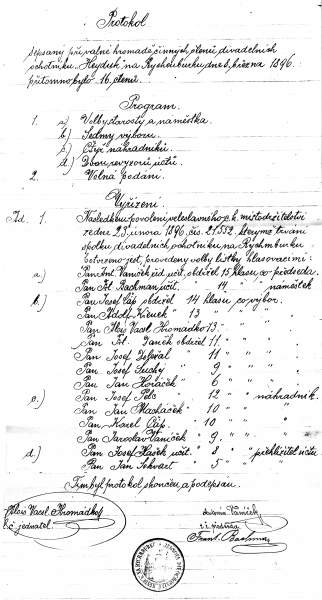 Protokol
sepsaný při valné hromadě činných členů divadelních
ochotníků "Hejduk" na Rychmburku dne 8. března 1896.
přítomno bylo 16 členů.
Program.
1. a) Volby starosty a náměstka.
b) Sedmy výboru.
c) Čtyř náhradníků
d) Dvou revisorů účtů
2. Volné podání.
Vyřízení.
Ad. 1. Následkem povolení veleslavného c. k. místodržitelství
ze dne 23. února 1896, čís. 21.552, kterýmž trvání
spolku divadelních ochotníků na Rychmburku
potvrzeno jest, provedeny volby lístky hlasovacími:
a.) Pan Ant. Vaníček říd. učit. obdržel 15 hlasů co předseda.
Pan Fr. Bachman učit. " 14 " " náměstek
b.) Pan Josef Čáp obdržel 14 hlasů co výbor.
Pan Adolf " 13 " "
Pan Alois Vacl. Hromádko 13 " "
Pan Fr. Daněk obdržel 11 " "
Pan Josef " 11 " "
Pan Josef Suchý " 9 " "
Pan Jan Horáček " 6 " "
c.) Pan Josef Pelc " 12 " " náhradník.
Pan Jan Macháček " 10 " "
Pan Karel Čáp " 10 " "
Pan Jaroslav Vaníček " 9 " "
d.) Pan Josef Hašek uč. " 8 " " přehlížitel účtů
Pan Jan " 5 " "
Tím byl protokol skončen a podepsán.
Alois Vacl. Hromádko
t. č. jednatel.
Antonín Vaníček
t. č. předseda
Frant. Bachman